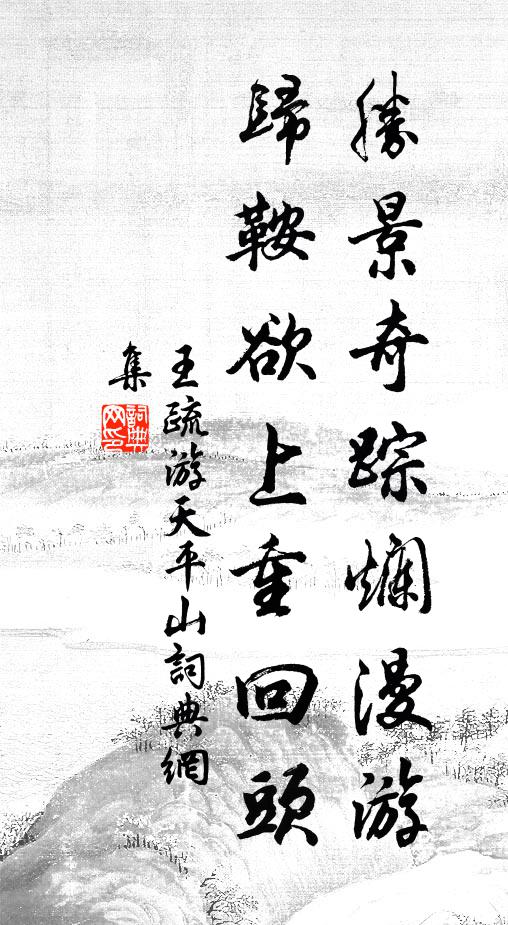 勝景奇踪爛漫游
歸鞍欲上重回頭
王疏游天平山詞典網
集
詞典网印